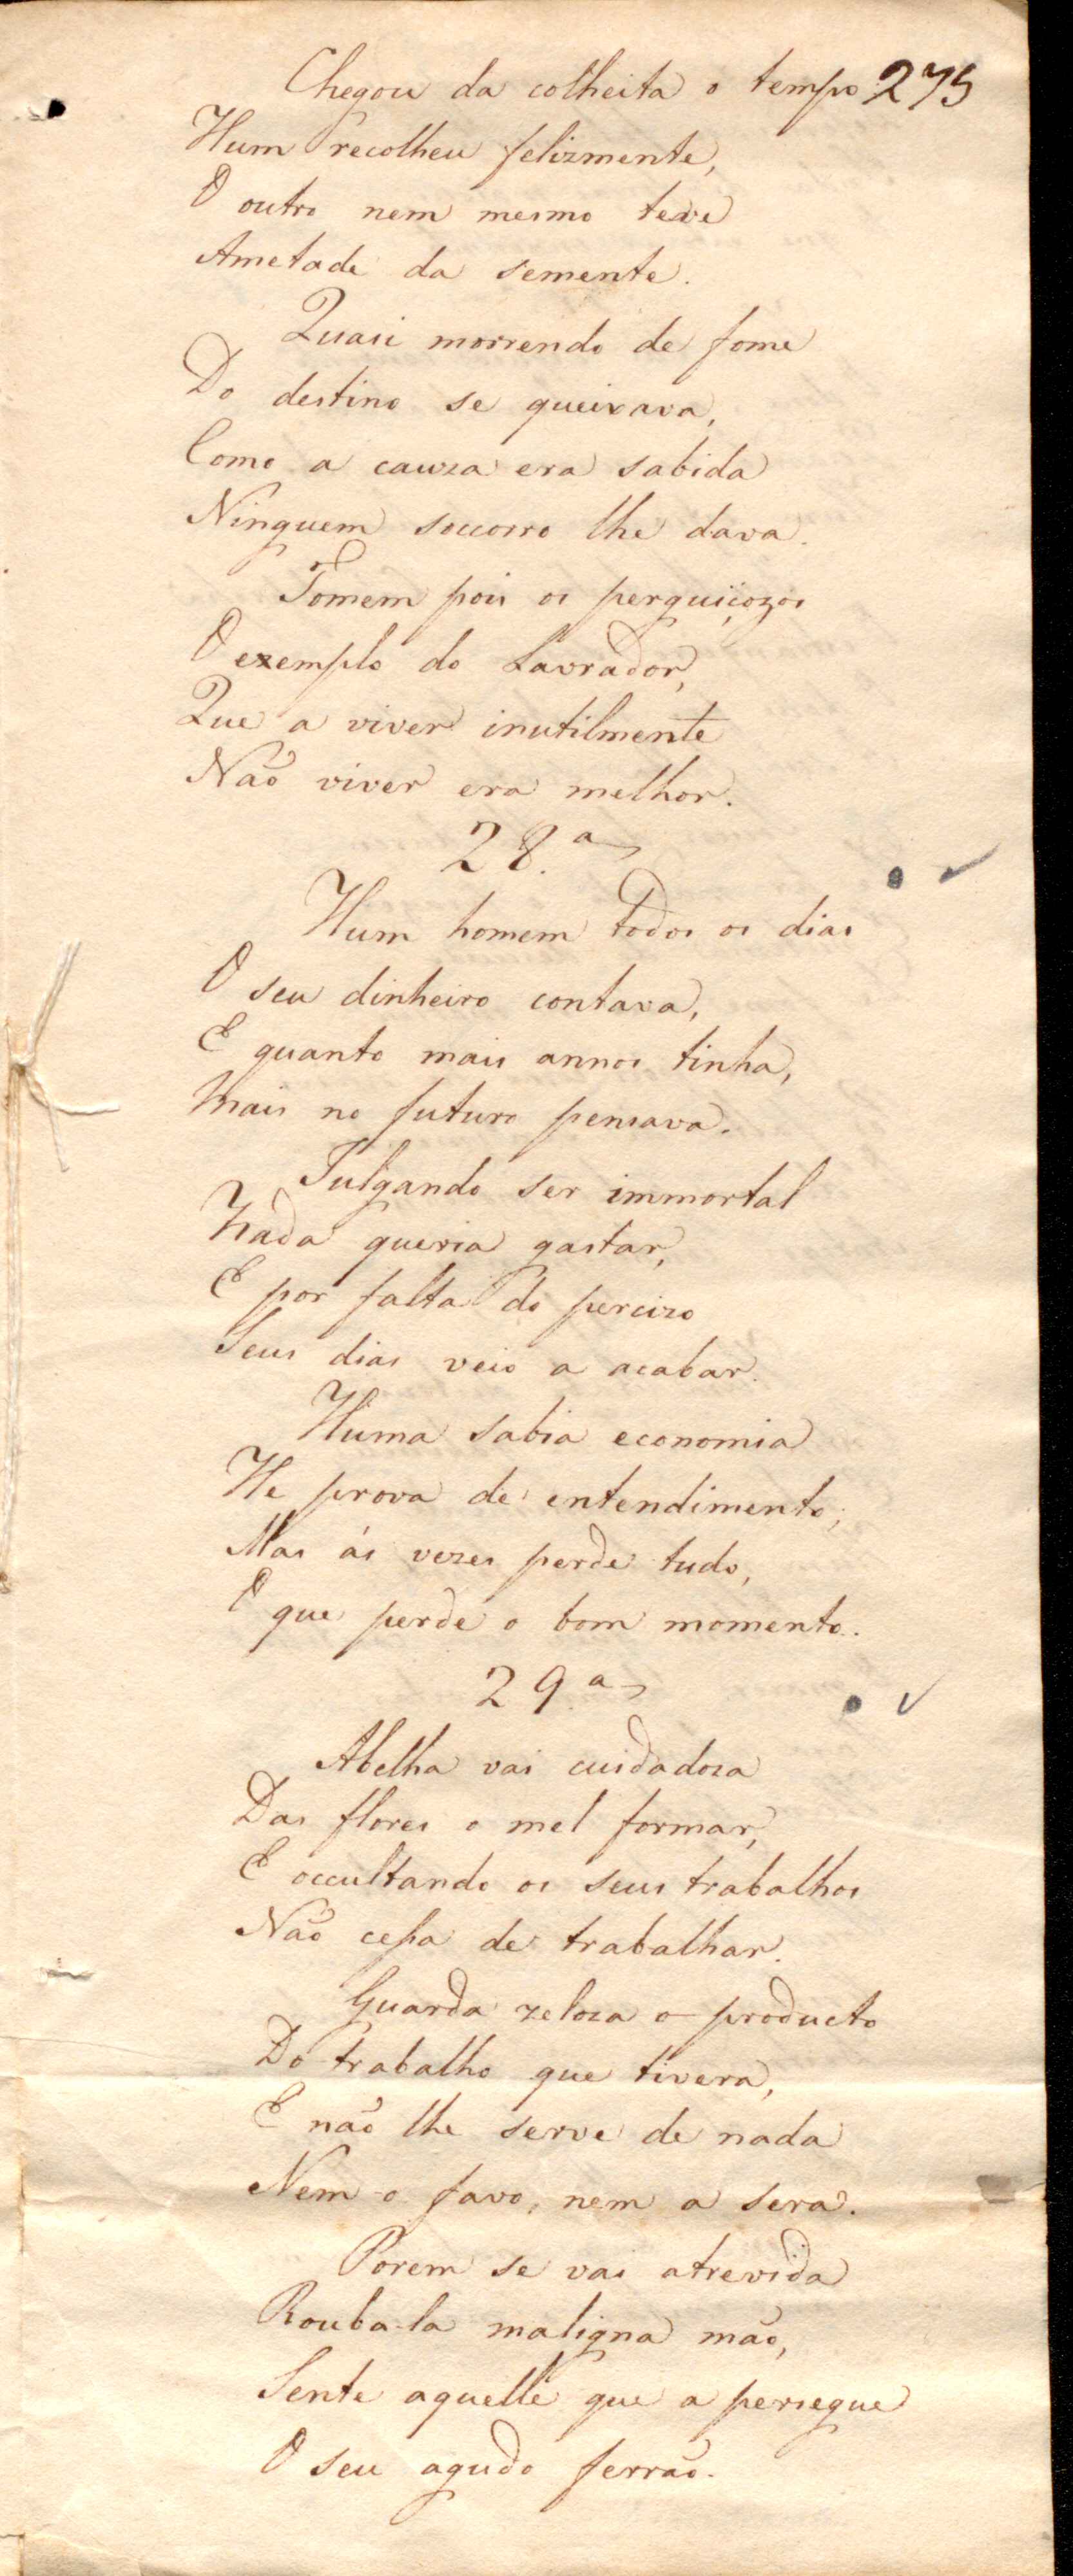 Chegou da colheita o tempo 275
Hum recolheu felizmente,
O outro nem mesmo teve
Ametade da semente.
Quasi morrendo de fome
Do destino se queixava,
Como a cauza era sabida
Ninguem soccorro lhe dava.
Tomem pois os perguiçozos
O exemplo do Lavrador,
Que a viver inutilmente
Não viver era melhor.
28.ª
Hum homem todos os dias
O seu dinheiro contava,
E quanto mais annos tinha,
Mais no futuro pensava.
Julgando ser immortal
Nada queria gastar,
E por falta do percizo
Seus dias veio a acabar.
Huma sabia economia
He prova de entendimento;
Mas ás vezes perde tudo,
O que perde o bom momento.
29.ª
Abelha vai cuidadoza
Das flores o mel formar,
E occultando os seus trabalhos
Não cessa de trabalhar.
Guarda zeloza o producto
Do trabalho que tivera,
E não lhe serve de nada
Nem o favo, nem a sera.
Porem se vai atrevida
Rouba-la maligna mão,
Sente aquelle que a persegue
O seu agudo ferrão.